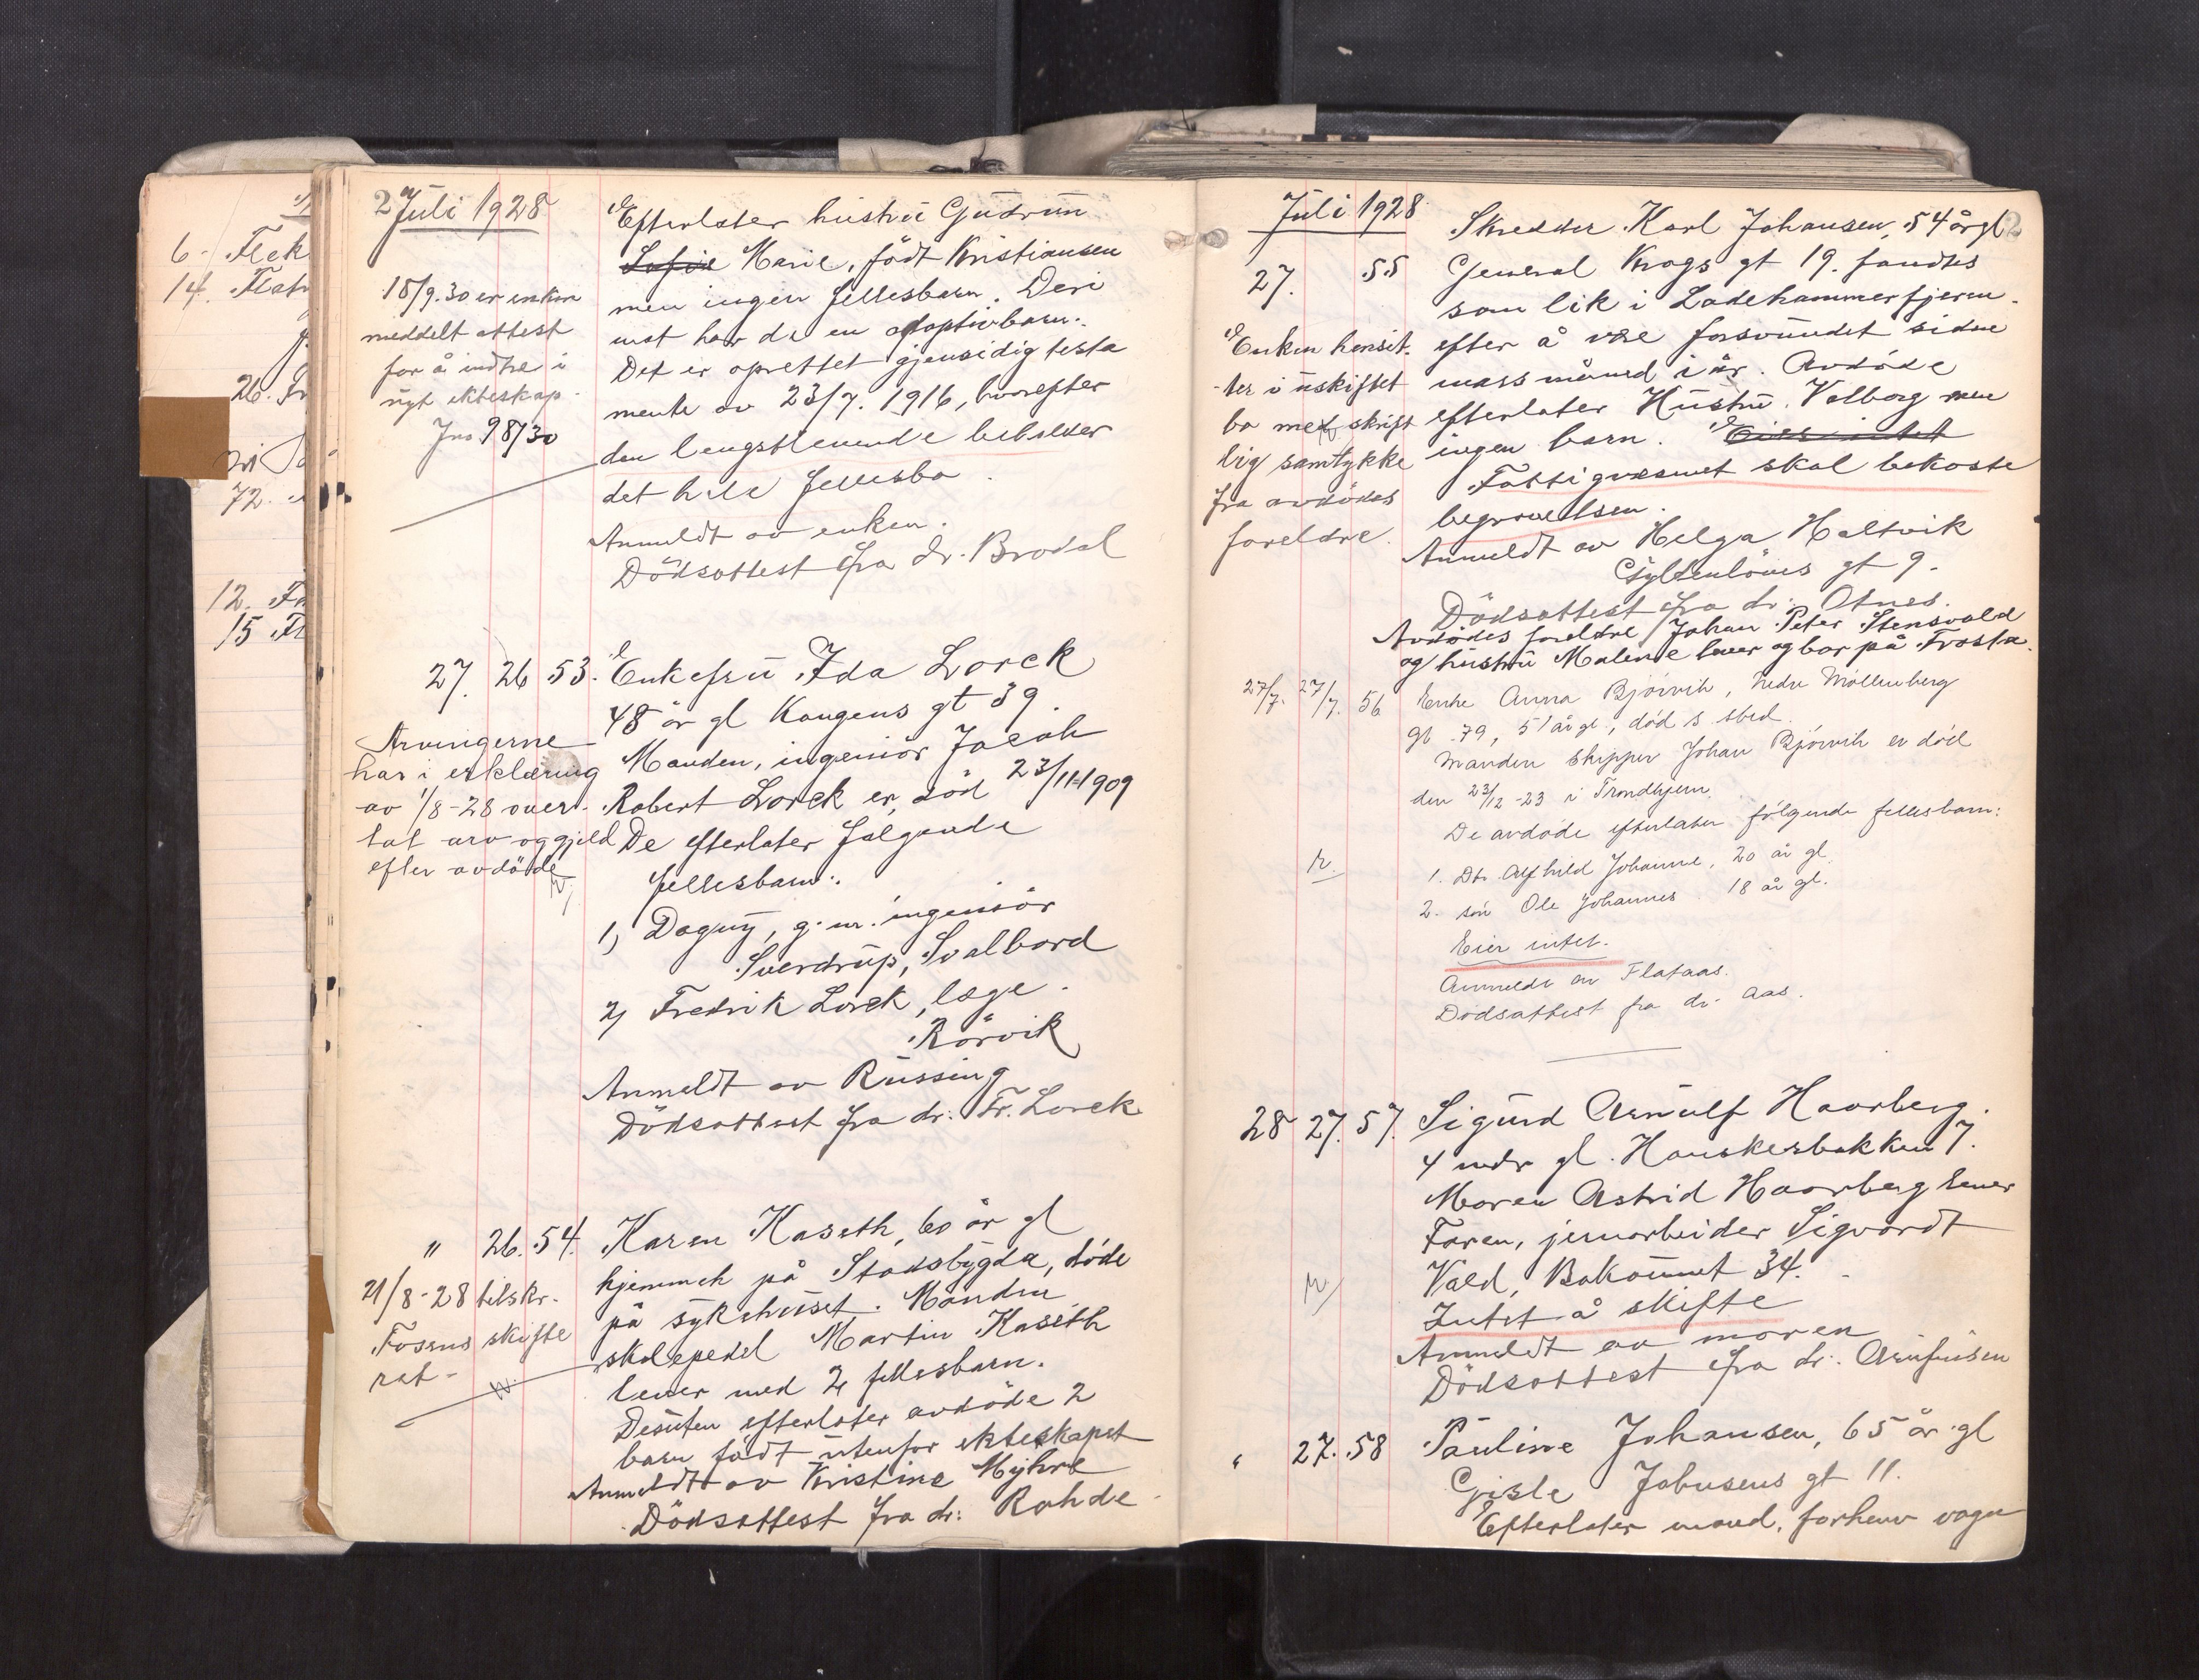 6 -
14.
26.
72.
12.
15
2 Juli 1928
Efterlater hustru Gudrun
Sofie Marie, födt Kristiansen
men ingen fellesbarn. Deri
mot har de en adoptivbarn.
Det er oprettet gjensidig testa
mente av 23/7. 1916, hvorefter
den lengstlevende beholder
det hele fellesbo.
Anmeldt av enken.
Dödsattest fra dr. Brodal
18/9.30 er enken
meddelt attest
for å indtre i
nyt ekteskap.
Jno 98/30
27. 26 53. Enkefru Ida Lorck
48 år gl Kongens gt 39.
Manden, ingeniör Jacob
Robert Lorck er död 23/11-1909
De efterlater følgende
fellesbarn:
1, Dagny, g. m. ingeniör
Sverdrup, Svalbard
2, Fredrik Lorck, læge.
Rörvik
Anmeldt av Russing
Dödsattest fra dr. Fr. Lorck
Arvingerne
har i erklæring
av 1/8-28 over-
tat arv og gjeld
efter avdöde
" 26. 54. Karen Kaseth, 60 år gl
hjemmeh på Stadsbygda, döde
på sykehuset. Manden
skolepedel Martin Kaseth
lever med 2 fellesbarn.
Desuten efterlater avdöde 2
barn födt utenfor ekteskapet
Anmeldt av Kristine Myhre
Dödsattest fra dr: Rohde
21/8-28 tilskr.
Fosens skifte
ret-
Juli 1928
27. 55 Skredder Karl Johansen, 54 år gl
General Krogs gt 19. fandtes
som lik i Ladehammerfjæren.
efter å være forsvundet siden
mars måned i år. Avdöde
efterlater Hustru Valborg men
ingen barn. Eier intet
Fattigvæsnet skal bekoste
begravelsen.
Anmeldt av Helga Haltvik
Gyldenlöves gt 9.
Dödsattest fra dr. Otnes.
Avdödes foreldre Johan Peter Stensvald
og hustru Malene lever og bor på Frosta.
Enken hensit-
ter i uskiftet
bo med skrift
lig samtykke
fra avdödes
foreldre.
27/7. 27/7. 56 Enke Anna Bjørvik, nedre Møllenberg
gt. 79, 51 år gl., død s. sted.
Manden skipper Johan Bjørvik er død
den 23/12-23 i Trondhjem.
De avdøde efterlater følgende fellesbarn:
1. Dtr. Alfhild Johanne, 20 år gl.
2. søn Ole Johannes 18 år gl.
Eier intet.
Anmeldt av Flataas.
Dødsattest fra dr. Aas.
28 27. 57. Sigurd Arnulf Haarberg.
4 mdr gl. Hanskesbakken 7.
Moren Astrid Haarberg lever
Faren, jernarbeider Sigvardt
Vald, Bakaunet 34.
Intet å skifte
Anmeldt av moren
Dödsattest fra dr. Arnfinsen
" 27. 58 Pauline Johansen, 65 år gl
Gisle Johnsens gt 11.
Efterlater mand, forhenv vogn